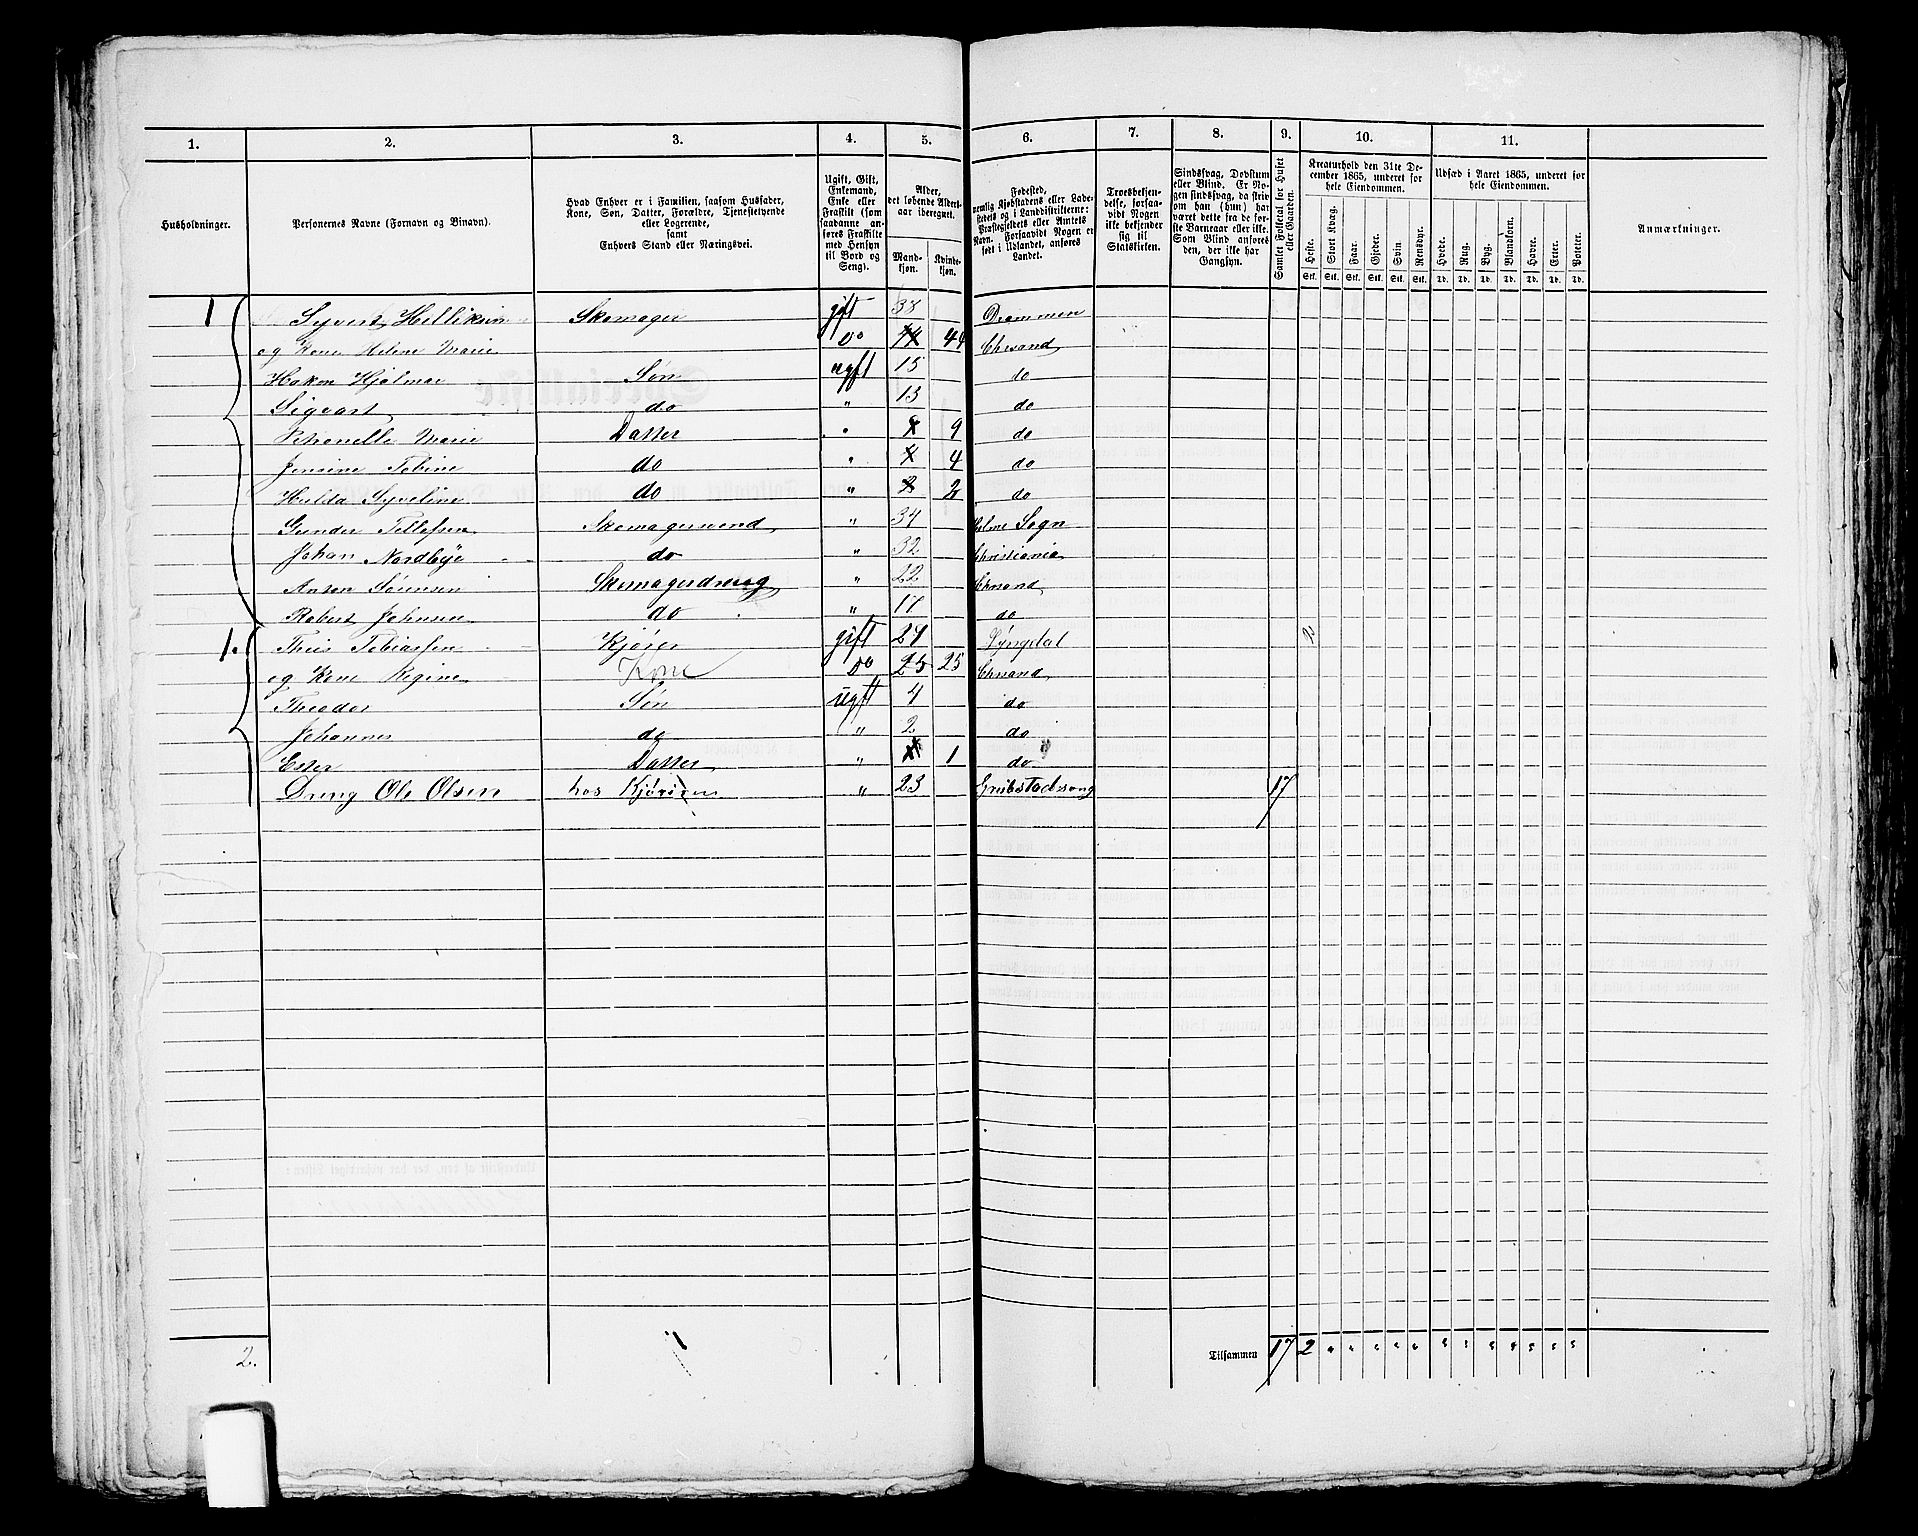 1. 2. 3. 4. 5. 6. 7. 8. 9. 10. 11.
Husholdninger.
Personernes Navne (Fornavn og Binavn).
Hvad Enhver er i Familien, saasom Husfader,
Kone, Søn, Datter, Forældre, Tjenestetyende
eller Logerende,
samt
Enhvers Stand eller Næringsvei.
Ugift, Gift,
Enkemand,
Enke eller
Fraskilt (som
saadanne an-
føres Fraskilte
med Hensyn
til Bord og
Seng).
Alder,
det løbende Alders-
aar iberegnet.
Mand-
kjøn.
Kvinde-
kjøn.
Fødested,
nemlig Kjøbstadens eller Lade-
stedets og i Landdistrikterne:
Præstegjeldets eller Amtets
Navn. Forsaavidt Nogen er
født i Udlandet, anføres
Landet.
Troesbekjen-
delse, forsaa-
vidt Nogen
ikke bekjender
sig til
Statskirken.
Sindssvag, Døvstum
eller Blind. Er No-
gen sindssvag, da skriv
om han (hun) har
været dette fra de før-
ste Barneaar eller ikke.
Som Blind anføres
den, der ikke har
Gangsyn.
Samlet Folketal for Huset
eller Gaarden.
Kreaturhold den 31te De-
cember 1865, underet for
hele Eiendommen.
Heste. Stort Kvæg. Faar. Gjeder. Svin Rensdyr.
Stk. Stk. Stk. Stk. Stk. Stk.
Udsæd i Aaret 1865, underet for
hele Eiendommen.
Hvede. Rug. Byg. Blandkorn. Havre. Erter. Poteter.
Td. Td. Td. Td. Td. Td. Td.
Anmærkninger.
1 Syvert Helliksen Skomager gift 38 Drammen
og Kone Helene Marie do 44 44 Chrsand
Hakon Hjalmar Søn ugft 15 do
Sigvart do " 13 do
Petronelle Marie Datter " 9 do
Jensine Tobine do " 4 4 do
Hulda Syveline do " 2 2 do
Gunder Tellefsen Skomagersvend " 34 Holme Sogn
Johan Nordbye do " 32 Christiania
Anton Sørensen Skomagerdreng " 22 Chrsand
Robert Johnsen do " 17 do
1. Theis Tobiassen Kjører gift 27 Lyngdal 2
og Kone Regine Kone do 25 25 Chrsand
Theodor Søn ugft 4 do
Johannes do " 2 do
Ester Datter " 1 do
Dreng Ole Olsen hos Kjøreren " 23 Gribstadsong 17
2. Tilsammen 17 2 " " " " " " " " " " " "